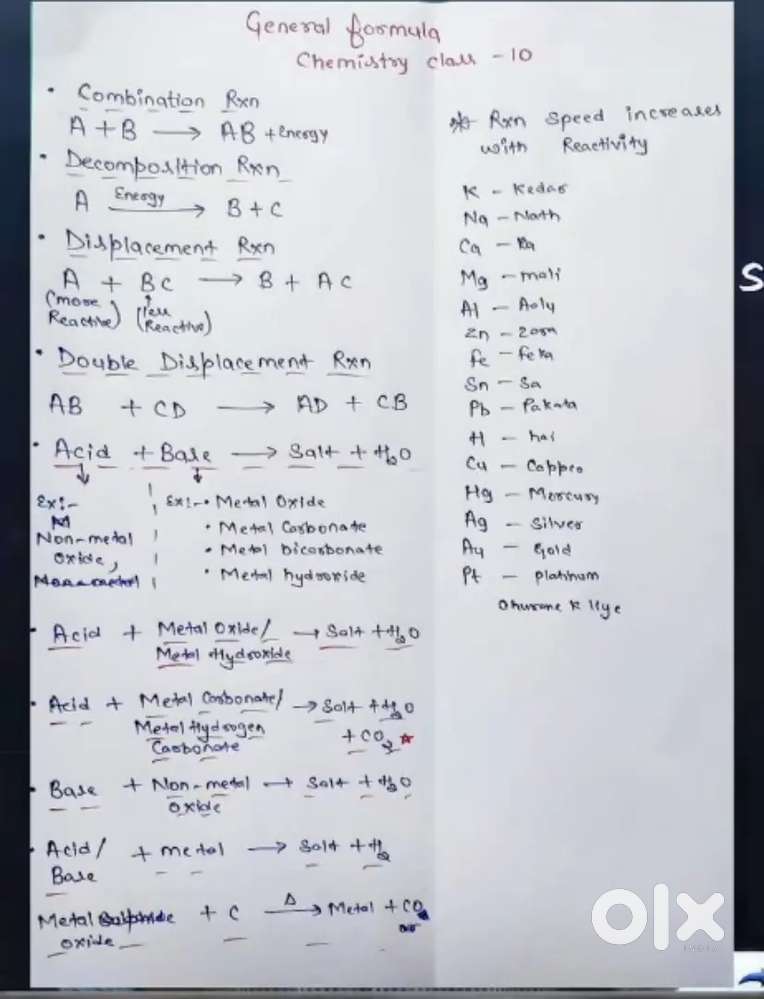 General formula
Chemistry class - 10
• Combination Rxn
A + B → AB + Energy
• Decomposition Rxn
A Energy → B + C
• Displacement Rxn
A + BC → B + AC
(more Reactive) (less Reactive)
• Double Displacement Rxn
AB + CD → AD + CB
• Acid + Base → Salt + H₂O
Ex:-
Non-metal
Oxide,
Ex:- • Metal Oxide
• Metal Carbonate
• Metal bicarbonate
• Metal hydroxide
• Acid + Metal Oxide/ → Salt + H₂O
Metal Hydroxide
• Acid + Metal Carbonate/ → Salt + H₂O
Metal Hydrogen + CO₂ ☆
Carbonate
• Base + Non-metal → Salt + H₂O
Oxide
• Acid/ + metal → Salt + H₂
Base
Metal + C Δ → Metal + CO
oxide
* Rxn Speed increases
with Reactivity
K - Kedar
Na - Nath
Ca - Ka
Mg - mali
Al - Aalu
Zn - Zara
Fe - Feka
Sn - Sa
Pb - Pakata
H - hai
Cu - Copper
Hg - Mercury
Ag - Silver
Au - Gold
Pt - Platinum
S
olx